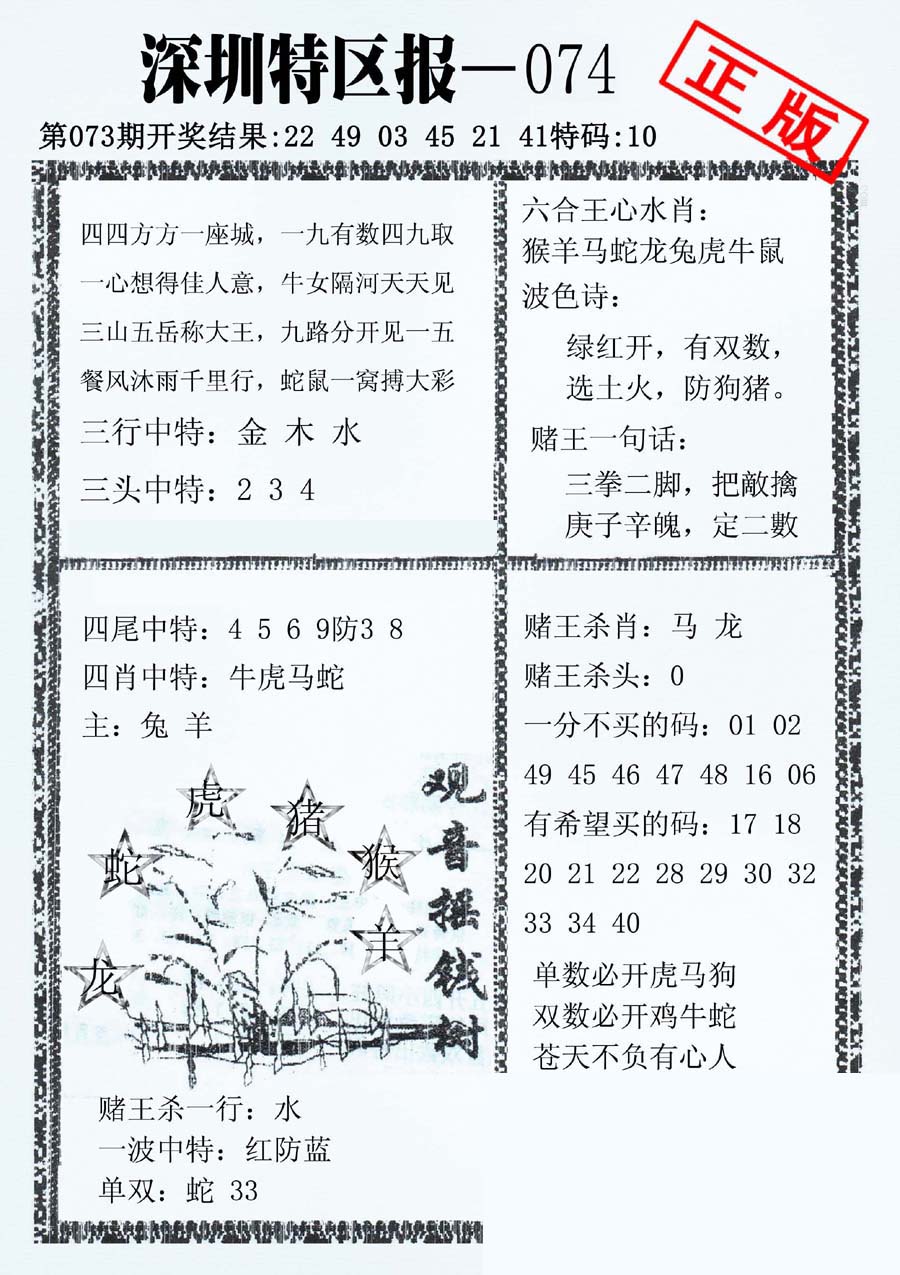 深圳特区报—074
正版
第073期开奖结果:22 49 03 45 21 41特码:10
四四方方一座城，一九有数四九取
一心想得佳人意，牛女隔河天天见
三山五岳称大王，九路分开见一五
餐风沐雨千里行，蛇鼠一窝搏大彩
三行中特：金 木 水
三头中特：2 3 4
六合王心水肖：
猴羊马蛇龙兔虎牛鼠
波色诗：
绿红开，有双数，
选土火，防狗猪。
赌王一句话：
三拳二脚，把敵擒
庚子辛魄，定二數
四尾中特：4 5 6 9防3 8
四肖中特：牛虎马蛇
主：兔 羊
虎
猪
蛇
猴
羊
龙
观音摇钱树
赌王杀一行：水
一波中特：红防蓝
单双：蛇 33
赌王杀肖：马 龙
赌王杀头：0
一分不买的码：01 02
49 45 46 47 48 16 06
有希望买的码：17 18
20 21 22 28 29 30 32
33 34 40
单数必开虎马狗
双数必开鸡牛蛇
苍天不负有心人